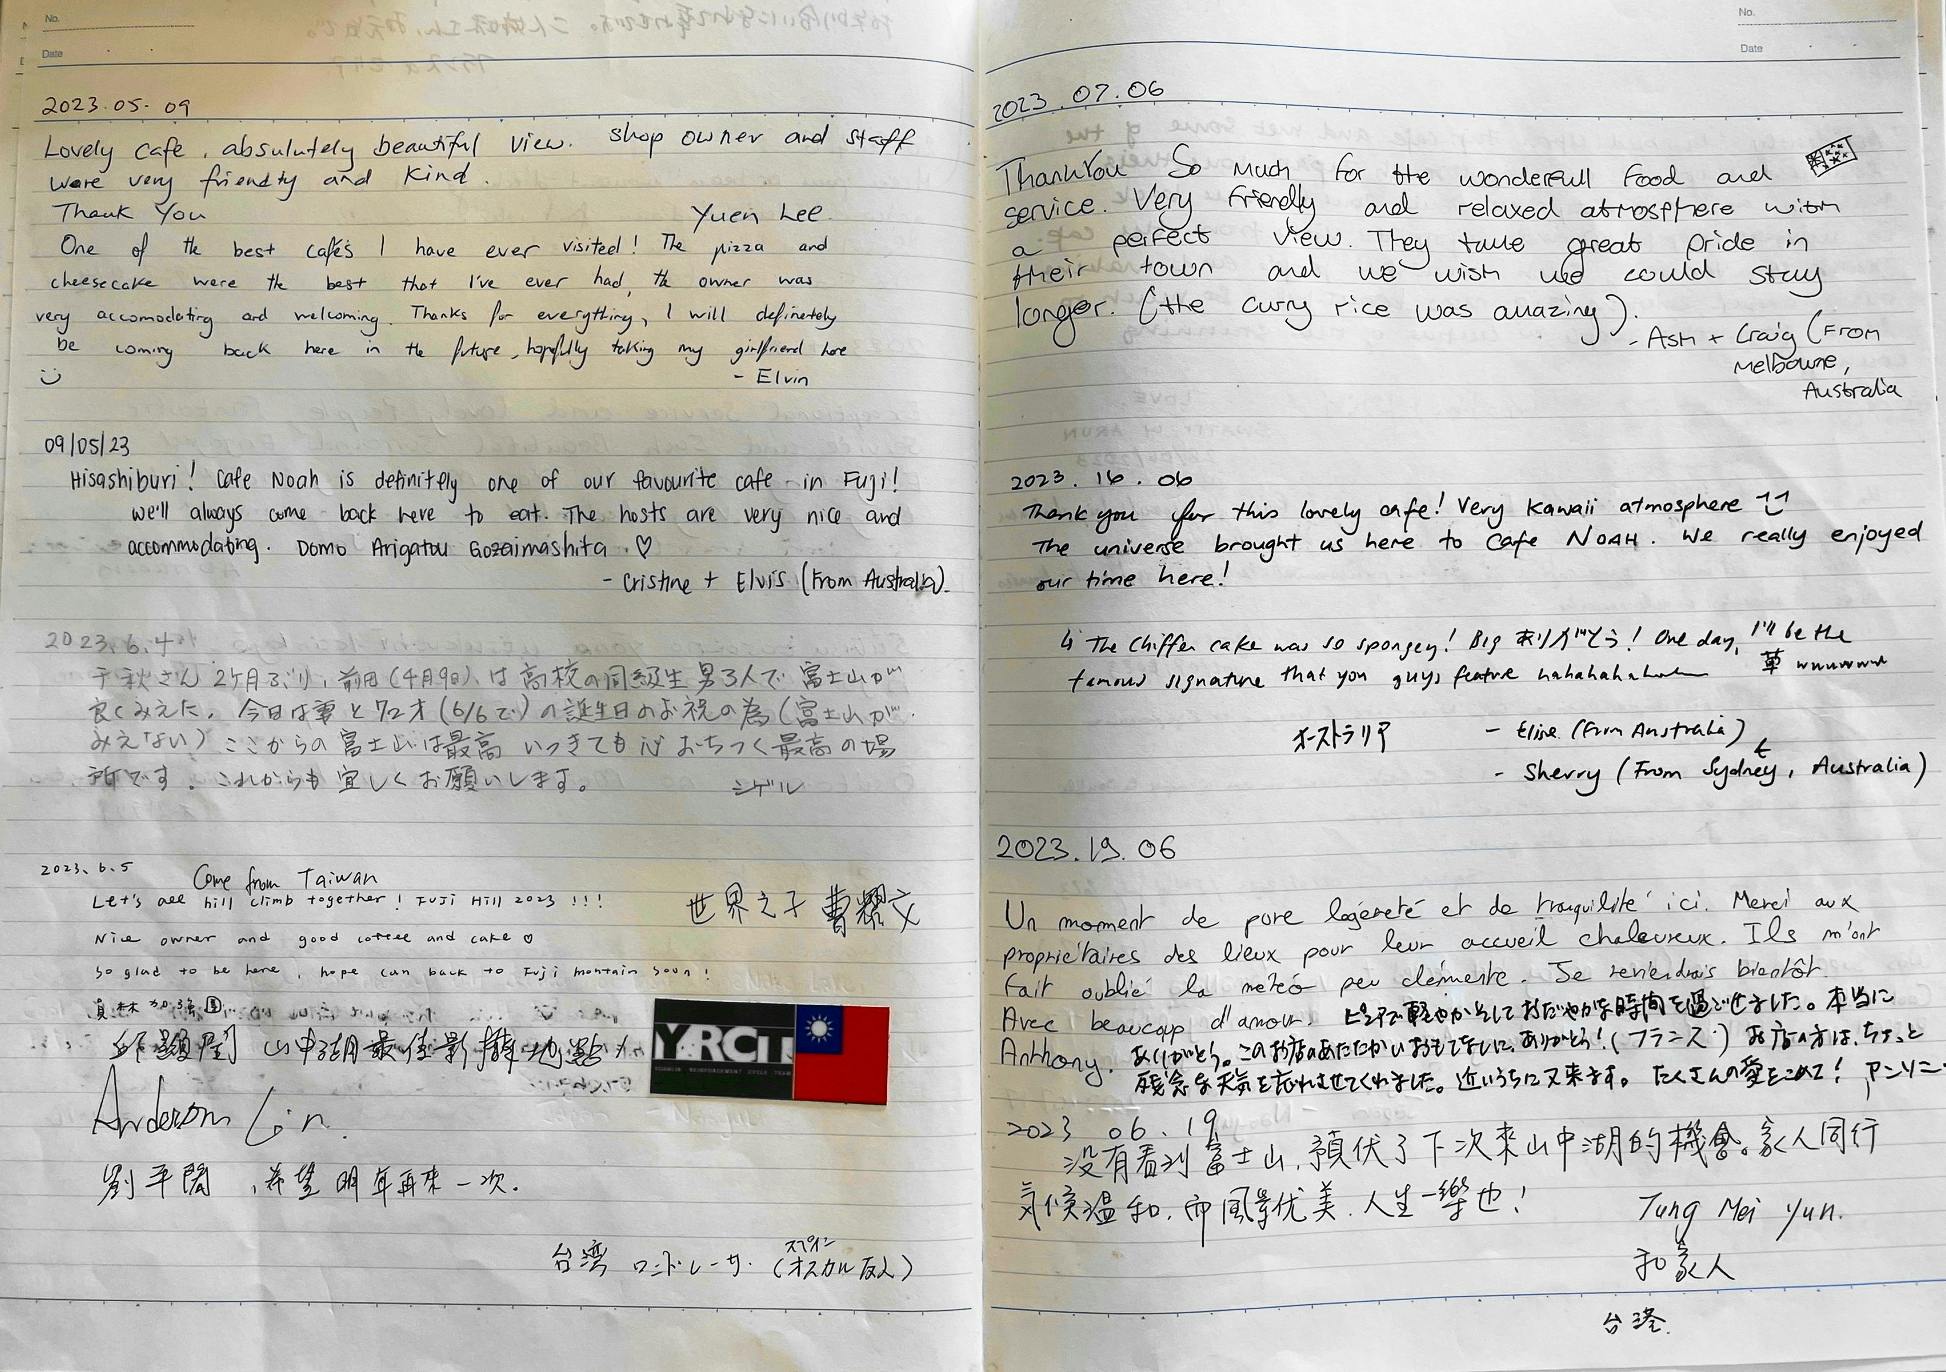 No.
Date
2023.05.09
Lovely cafe, absulutely beautiful view. shop owner and staff
were very friendty and kind.
Thank You
Yuen Lee.
One of the best cafés I have ever visited! The pizza and
cheesecake were the best that I've ever had, the owner was
very accomodating and welcoming. Thanks for everything, I will definetely
be coming back here in the future, hopfully taking my girlfriend here
- Elvin
09/05/23
Hisashiburi! Cafe Noah is definitely one of our favourite cafe in Fuji!
we'll always come back here to eat. The hosts are very nice and
accommodating. Domo Arigatou Gozaimashita. ♡
- Cristine + Elvis (From Australia).
2023.6.4
千秋さん 2ヶ月ぶり、前回(4月9日)は高校の同級生男3人で富士山が
良くみえた。今日は妻と72才(6/6で)の誕生日のお祝の為(富士山が
みえない)ここからの富士山は最高 いつきても心おちつく最高の場
所です。これからも宜しくお願いします。
シゲル
2023.6.5
Come from Taiwan
Let's all hill climb together! FUJI Hill 2023 !!!
世界之子 曹耀文
Nice owner and good coffee and cake ♡
So glad to be here, hope can back to Fuji montain soon!
員林加強團
山中湖最佳影攝地點
YRCT
Anderson Lin.
劉平閣,希望明年再來一次.
スペイン
台湾 ロードレーサ.(オスカル友人)
No.
Date
2023.07.06
ThankYou So much for the wonderfull food and
service. Very friendly and relaxed atmosphere with
a perfect view. They take great pride in
their town and we wish we could stay
longer. (the curry rice was amazing).
- Ash + Craig (From
Melbourne,
Australia
2023.16.06
Thank you for this lovely cafe! Very Kawaii atmosphere
The universe brought us here to Cafe NOAH. We really enjoyed
our time here!
↳ The chiffon cake was so spongey! Big ありがとう! One day, I'll be the
famous signature that you guys feature hahahahaha 草 wwwwww
オーストラリア
- Elise (From Australia)
- Sherry (From Sydney, Australia)
2023.19.06
Un moment de pure légèreté et de tranquilité ici. Merci aux
propriétaires des lieux pour leur accueil chaleureux. Ils m'ont
fait oublié la météo peu clémente. Je reviendrais bientôt.
Avec beaucoup d'amour. ピュアで軽やかそしておだやかな時間を過ごせました。本当に
Anthony. ありがとう。このお店のあたたかいおもてなしに、ありがとう!(フランス) お店の方は、ちょっと
残念な天気を忘れさせてくれました。近いうちに又来ます。たくさんの愛をこめて! アンソニー
2023 06.19
没有看到富士山,預伏了下次來山中湖的機會。家人同行
気候溫和,而風景优美.人生一樂也!
Tung Mei Yun.
和家人
台湾